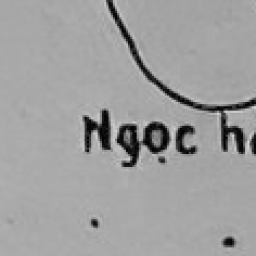 Ngọc